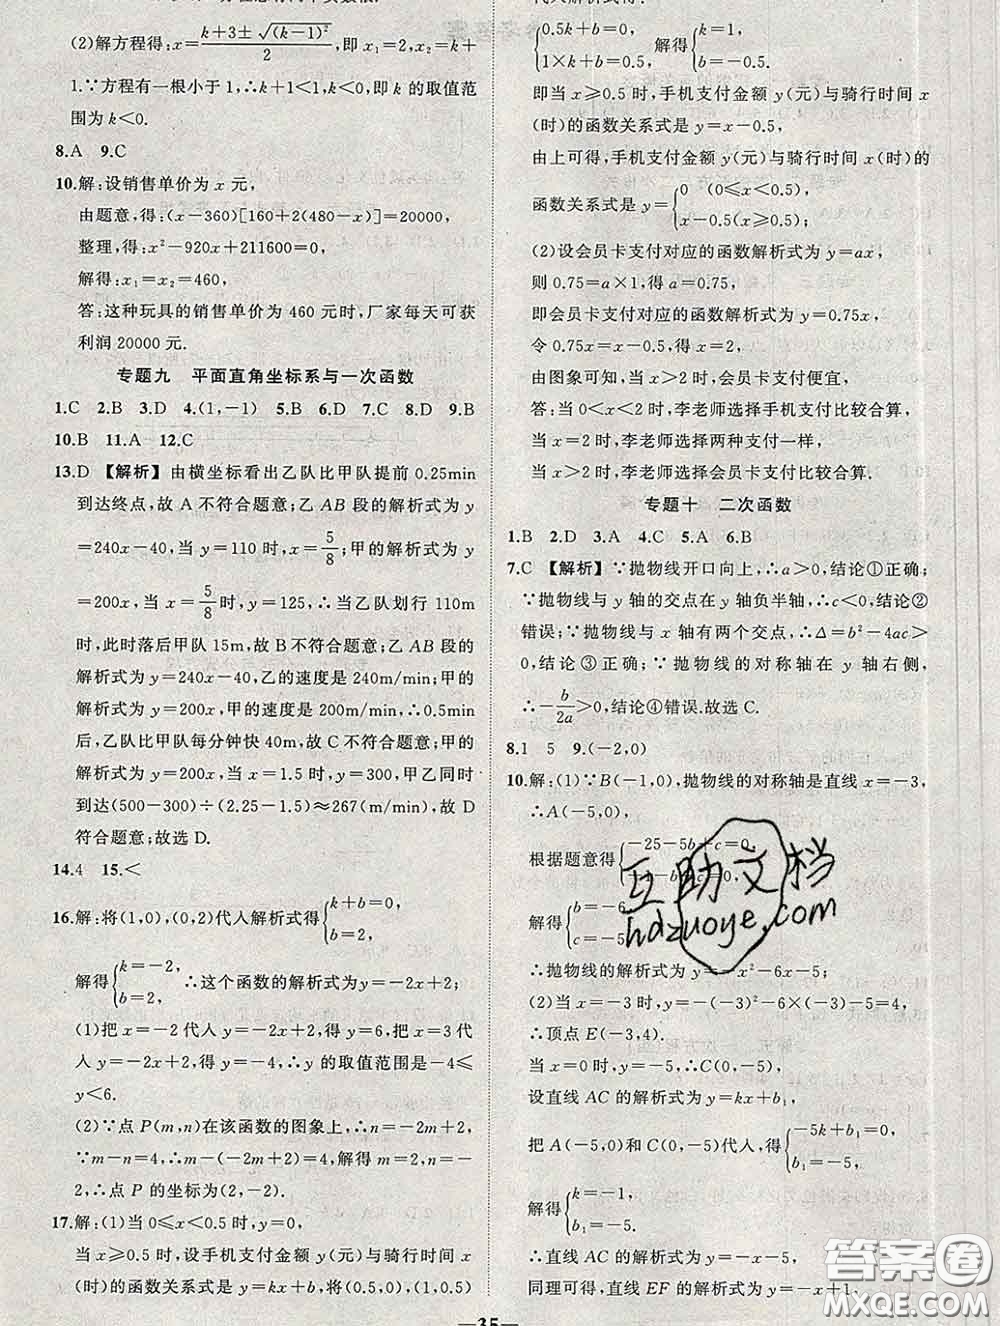 (2)解方程得:x=\frac{k+3±\sqrt{(k-1)^2}}{2},即 x₁=2,x₂=k+
1.∵方程有一根小于 1,∴k+1<1,k<0,即 k 的取值范
围为 k<0.
8.A 9.C
10.解:设销售单价为 x 元,
由题意,得:(x-360)[160+2(480-x)]=20000,
整理,得:x²-920x+211600=0,
解得:x₁=x₂=460,
答:这种玩具的销售单价为 460 元时,厂家每天可获
利润 20000 元.
专题九 平面直角坐标系与一次函数
1.C 2.B 3.D 4.(1,-1) 5.B 6.D 7.C 8.D 9.B
10.B 11.A 12.C
13.D 【解析】由横坐标看出乙队比甲队提前 0.25min
到达终点,故 A 不符合题意;乙 AB 段的解析式为 y
=240x-40,当 y=110 时,x=\frac{5}{8};甲的解析式为 y
=200x,当 x=\frac{5}{8}时,y=125,∴当乙队划行 110m
时,此时落后甲队 15m,故 B 不符合题意;乙 AB 段的
解析式为 y=240x-40,乙的速度是 240m/min;甲的
解析式为 y=200x,甲的速度是 200m/min,∴0.5min
后,乙队比甲队每分钟快 40m,故 C 不符合题意;甲的
解析式为 y=200x,当 x=1.5 时,y=300,甲乙同时
到达(500-300)÷(2.25-1.5)≈267(m/min),故 D
符合题意;故选 D.
14.4 15.<
16.解:将(1,0),(0,2)代入解析式得{k+b=0, b=2,
解得{k=-2, b=2, ∴这个函数的解析式为 y=-2x+2;
(1)把 x=-2 代入 y=-2x+2,得 y=6,把 x=3 代
入 y=-2x+2,得 y=-4,∴y 的取值范围是-4≤
y<6.
(2)∵点 P(m,n)在该函数的图象上,∴n=-2m+2,
∵m-n=4,∴m-(-2m+2)=4,解得 m=2,n=-
2,∴点 P 的坐标为(2,-2).
17.解:(1)当 0≤x<0.5 时,y=0,
当 x≥0.5 时,设手机支付金额 y(元)与骑行时间 x
(时)的函数关系式是 y=kx+b,将(0.5,0),(1,0.5)
代入解析式得
{0.5k+b=0, 1×k+b=0.5, 解得{k=1, b=-0.5.
即当 x≥0.5 时,手机支付金额 y(元)与骑行时间 x
(时)的函数关系式是 y=x-0.5,
由上可得,手机支付金额 y(元)与骑行时间 x(时)的
函数关系式是 y={0 (0≤x<0.5) x-0.5(x≥0.5);
(2)设会员卡支付对应的函数解析式为 y=ax,
则 0.75=a×1,得 a=0.75,
即会员卡支付对应的函数解析式为 y=0.75x,
令 0.75x=x-0.5,得 x=2,
由图象可知,当 x>2 时,会员卡支付便宜,
答:当 0<x<2 时,李老师选择手机支付比较合算,
当 x=2 时,李老师选择两种支付一样,
当 x>2 时,李老师选择会员卡支付比较合算.
专题十 二次函数
1.B 2.D 3.A 4.C 5.A 6.B
7.C 【解析】∵抛物线开口向上,∴a>0,结论①正确;
∵抛物线与 y 轴的交点在 y 轴负半轴,∴c<0,结论②
错误;∵抛物线与 x 轴有两个交点,∴Δ=b²-4ac>
0,结论③正确;∵抛物线的对称轴在 y 轴右侧,
∴-\frac{b}{2a}>0,结论④错误.故选 C.
8.1 5 9.(-2,0)
10.解:(1)∵B(-1,0),抛物线的对称轴是直线 x=-3,
∴A(-5,0),
根据题意得{-25-5b+c=0, -1-b+c=0,
解得{b=-6, c=-5.
∴抛物线的解析式为 y=-x²-6x-5;
(2)当 x=-3 时,y=-(-3)²-6×(-3)-5=4,
∴顶点 E(-3,4).
当 x=0 时,y=-5,∴C(0,-5),
设直线 AC 的解析式为 y=kx+b₁,
把 A(-5,0)和 C(0,-5)代入,得{-5k+b₁=0, b₁=-5,
解得{k=-1, b₁=-5.
∴直线 AC 的解析式为 y=-x-5,
同理可得:直线 EF 的解析式为 y=-x+1,
—35—
互助文档
hdzuoye.com
答案圈
MXQE.COM